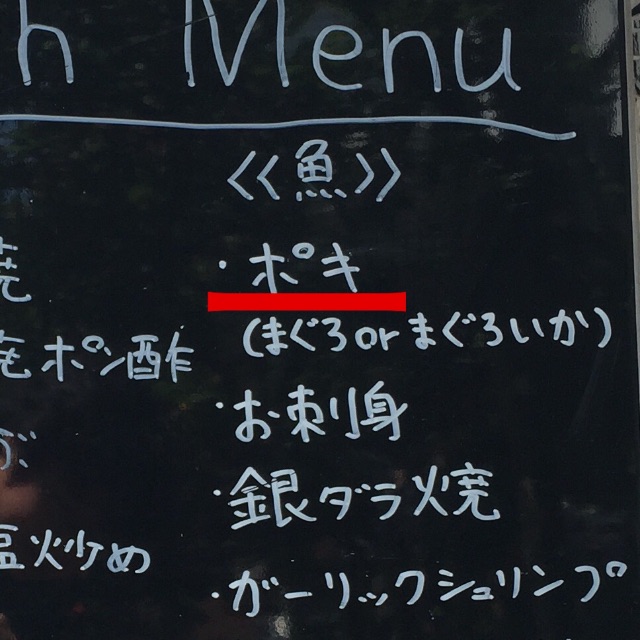 h Menu
<<魚>>
焼
・ポキ
(まぐろorまぐろいか)
焼ポン酢
・お刺身
・銀ダラ焼
塩炒め
・ガーリックシュリンプ